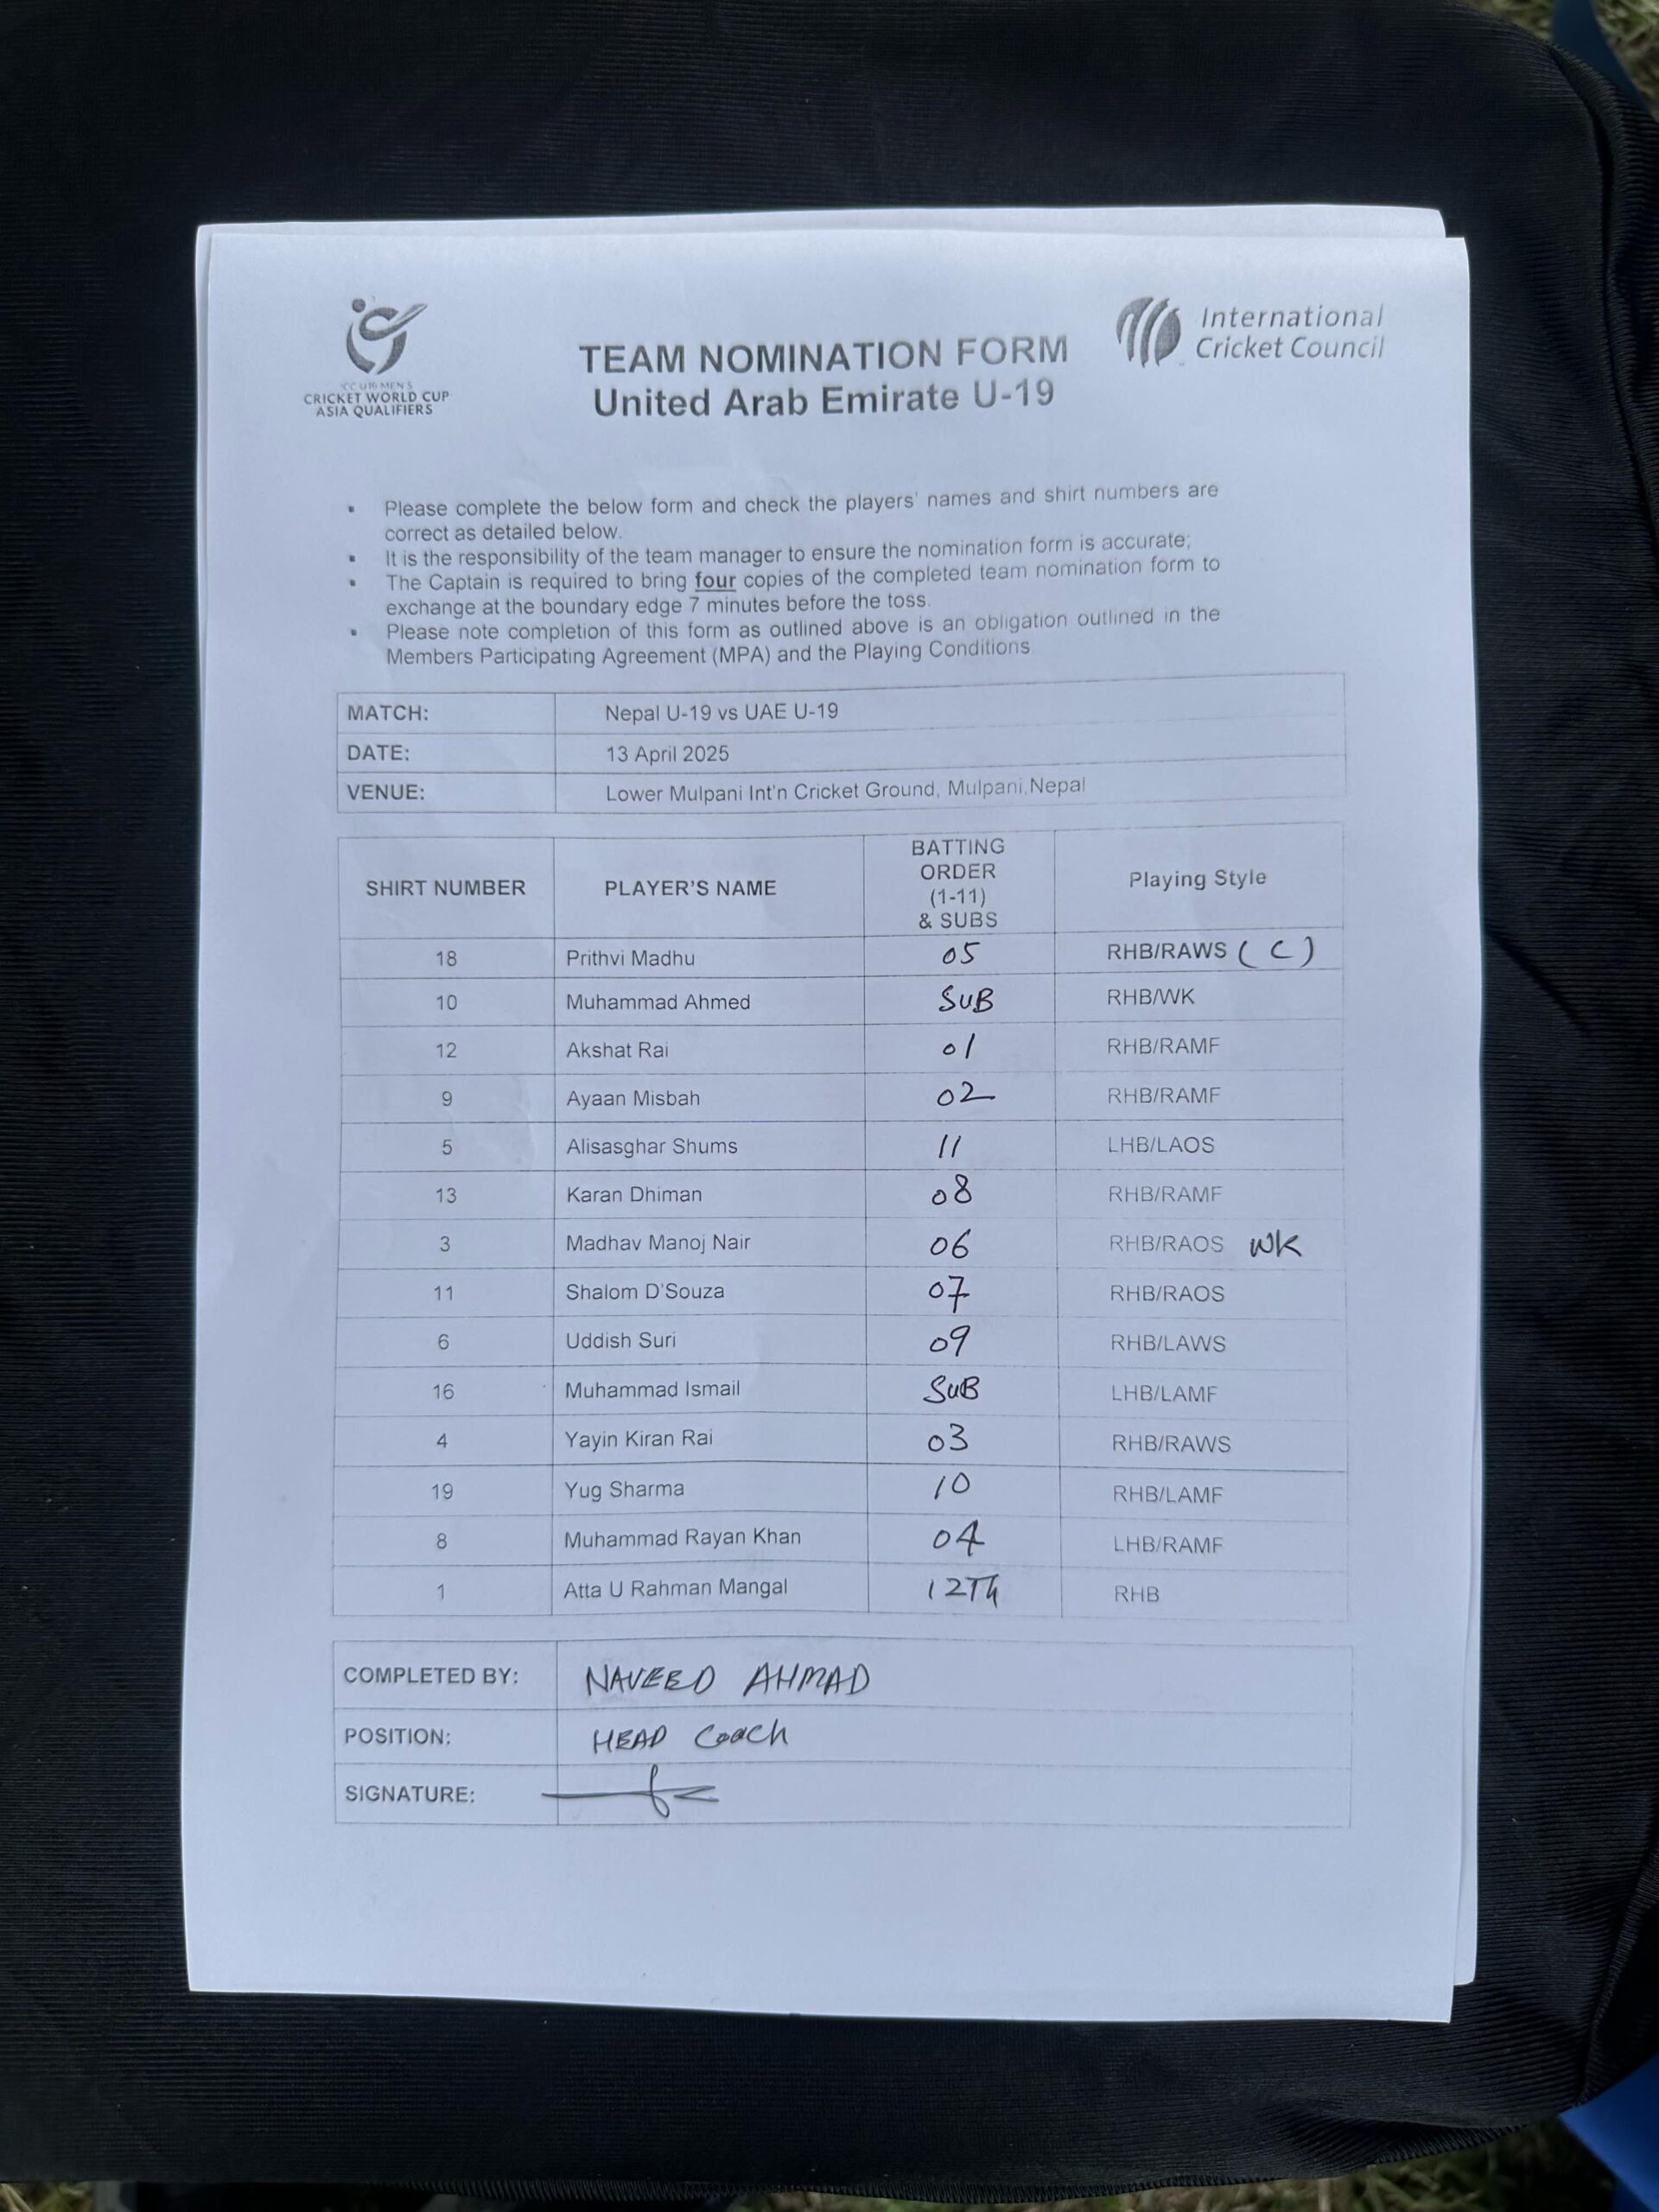 ICC U19 MEN'S
CRICKET WORLD CUP
ASIA QUALIFIERS
TEAM NOMINATION FORM
United Arab Emirate U-19
International
Cricket Council
▪ Please complete the below form and check the players' names and shirt numbers are
correct as detailed below.
▪ It is the responsibility of the team manager to ensure the nomination form is accurate;
▪ The Captain is required to bring four copies of the completed team nomination form to
exchange at the boundary edge 7 minutes before the toss.
▪ Please note completion of this form as outlined above is an obligation outlined in the
Members Participating Agreement (MPA) and the Playing Conditions.
MATCH: Nepal U-19 vs UAE U-19
DATE: 13 April 2025
VENUE: Lower Mulpani Int'n Cricket Ground, Mulpani,Nepal
SHIRT NUMBER PLAYER'S NAME BATTING ORDER (1-11) & SUBS Playing Style
18 Prithvi Madhu 05 RHB/RAWS (C)
10 Muhammad Ahmed SUB RHB/WK
12 Akshat Rai 01 RHB/RAMF
9 Ayaan Misbah 02 RHB/RAMF
5 Alisasghar Shums 11 LHB/LAOS
13 Karan Dhiman 08 RHB/RAMF
3 Madhav Manoj Nair 06 RHB/RAOS WK
11 Shalom D'Souza 07 RHB/RAOS
6 Uddish Suri 09 RHB/LAWS
16 Muhammad Ismail SUB LHB/LAMF
4 Yayin Kiran Rai 03 RHB/RAWS
19 Yug Sharma 10 RHB/LAMF
8 Muhammad Rayan Khan 04 LHB/RAMF
1 Atta U Rahman Mangal 12Th RHB
COMPLETED BY: NAVEED AHMAD
POSITION: HEAD Coach
SIGNATURE: